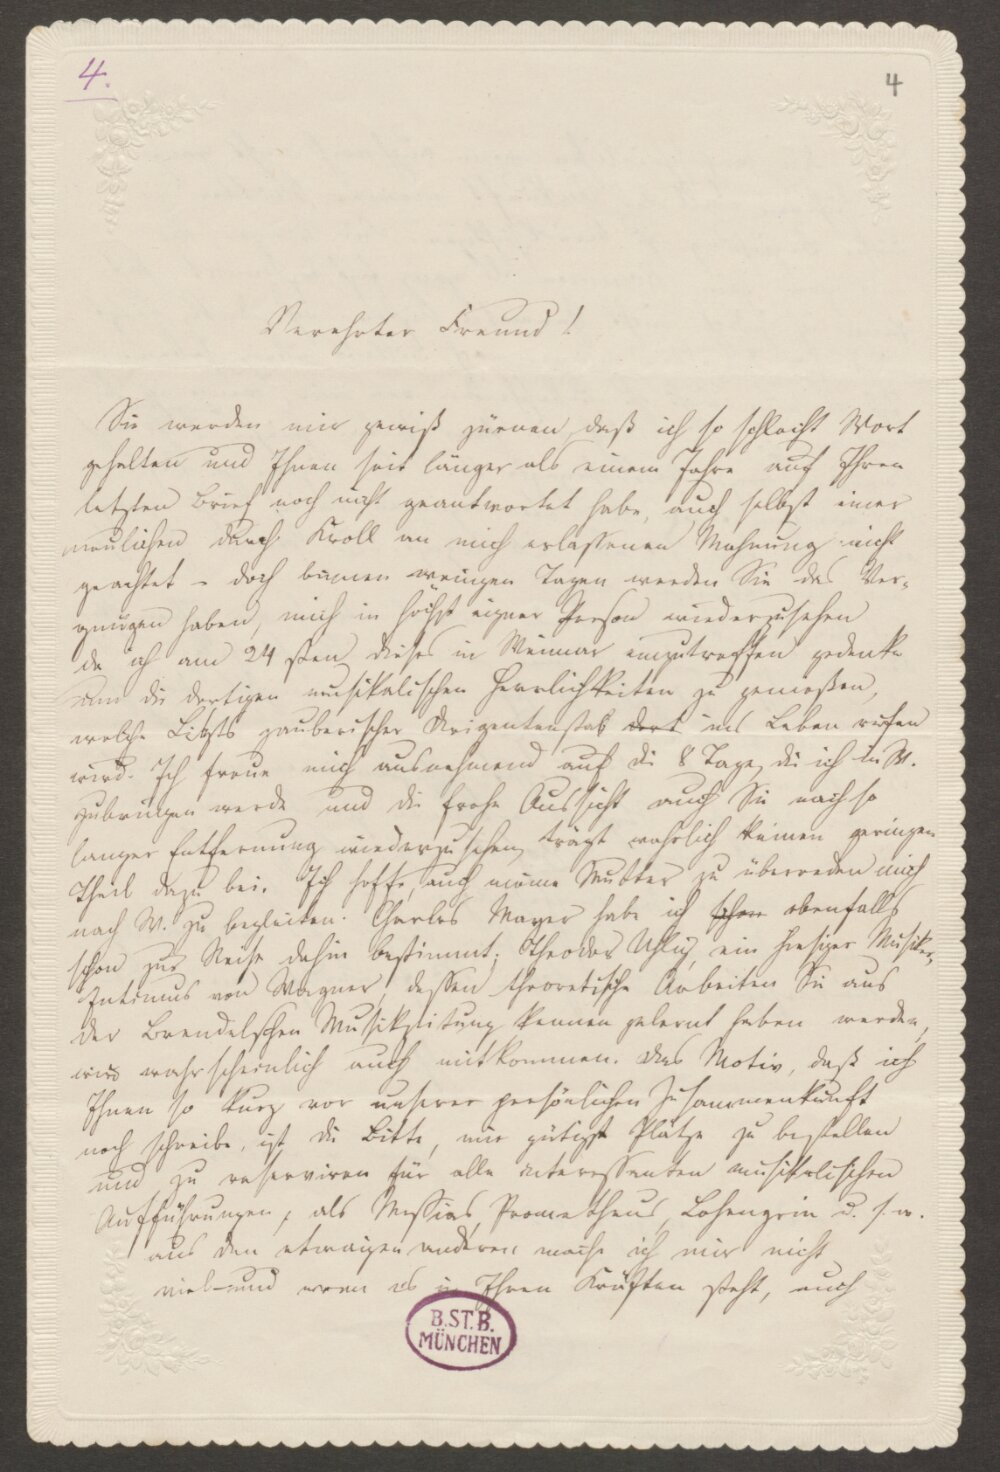 4.
4
Verehrter Freund!
Sie werden mir gewiß zürnen daß ich so schlecht Wort
gehalten und Ihnen seit länger als einem Jahre auf Ihren
letzten Brief noch nicht geantwortet habe, auch selbst einer
neulichen durch Kroll an mich erlassenen Mahnung nicht
geachtet – doch binnen wenigen Tagen werden Sie das Ver-
gnügen haben, mich in höchst eigner Person wiederzusehen
da ich am 24sten dieses in Weimar einzutreffen gedenke
um die dortigen musikalischen Herrlichkeiten zu genießen,
welche Liszts zauberischer Dirigentenstab dort ins Leben rufen
wird. Ich freue mich ausnehmend auf die 8 Tage, die ich in W.
zubringen werde und die frohe Aussicht auch Sie nach so
langer Entfernung wiederzusehen, trägt wahrlich keinen geringen
Theil dazu bei. Ich hoffe, auch meine Mutter zu überreden mich
nach W. zu begleiten. Charles Mayer habe ich schon ebenfalls
schon zur Reise dahin bestimmt; Theodor Uhlig, ein hiesiger Musiker,
Intimus von Wagner, dessen theoretische Arbeiten Sie aus
der Brendelschen Musikzeitung kennen gelernt haben werden,
wird wahrscheinlich auch mitkommen. Das Motiv, daß ich
Ihnen so kurz vor unserer persönlichen Zusammenkunft
noch schreibe, ist die Bitte, mir gütigst Plätze zu bestellen
und zu reserviren für alle interessanten musikalischen
Aufführungen, als Messias, Prometheus, Lohengrin u. s. w.
aus den etwaigen anderen mache ich mir nicht
viel – und wenn es in Ihren Kräften steht, auch
B.ST.B.
MÜNCHEN